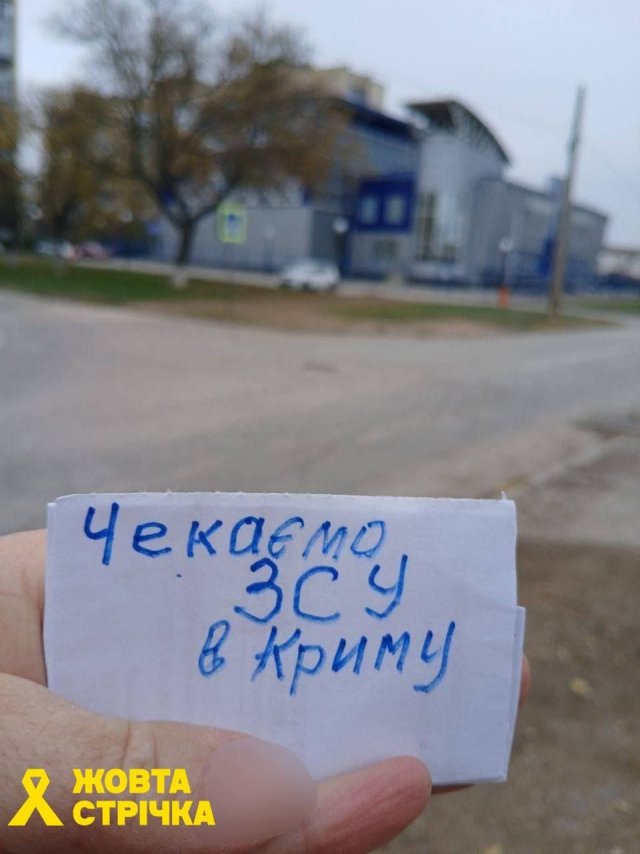 Чекаємо
ЗСУ
в Криму
ЖОВТА
СТРІЧКА